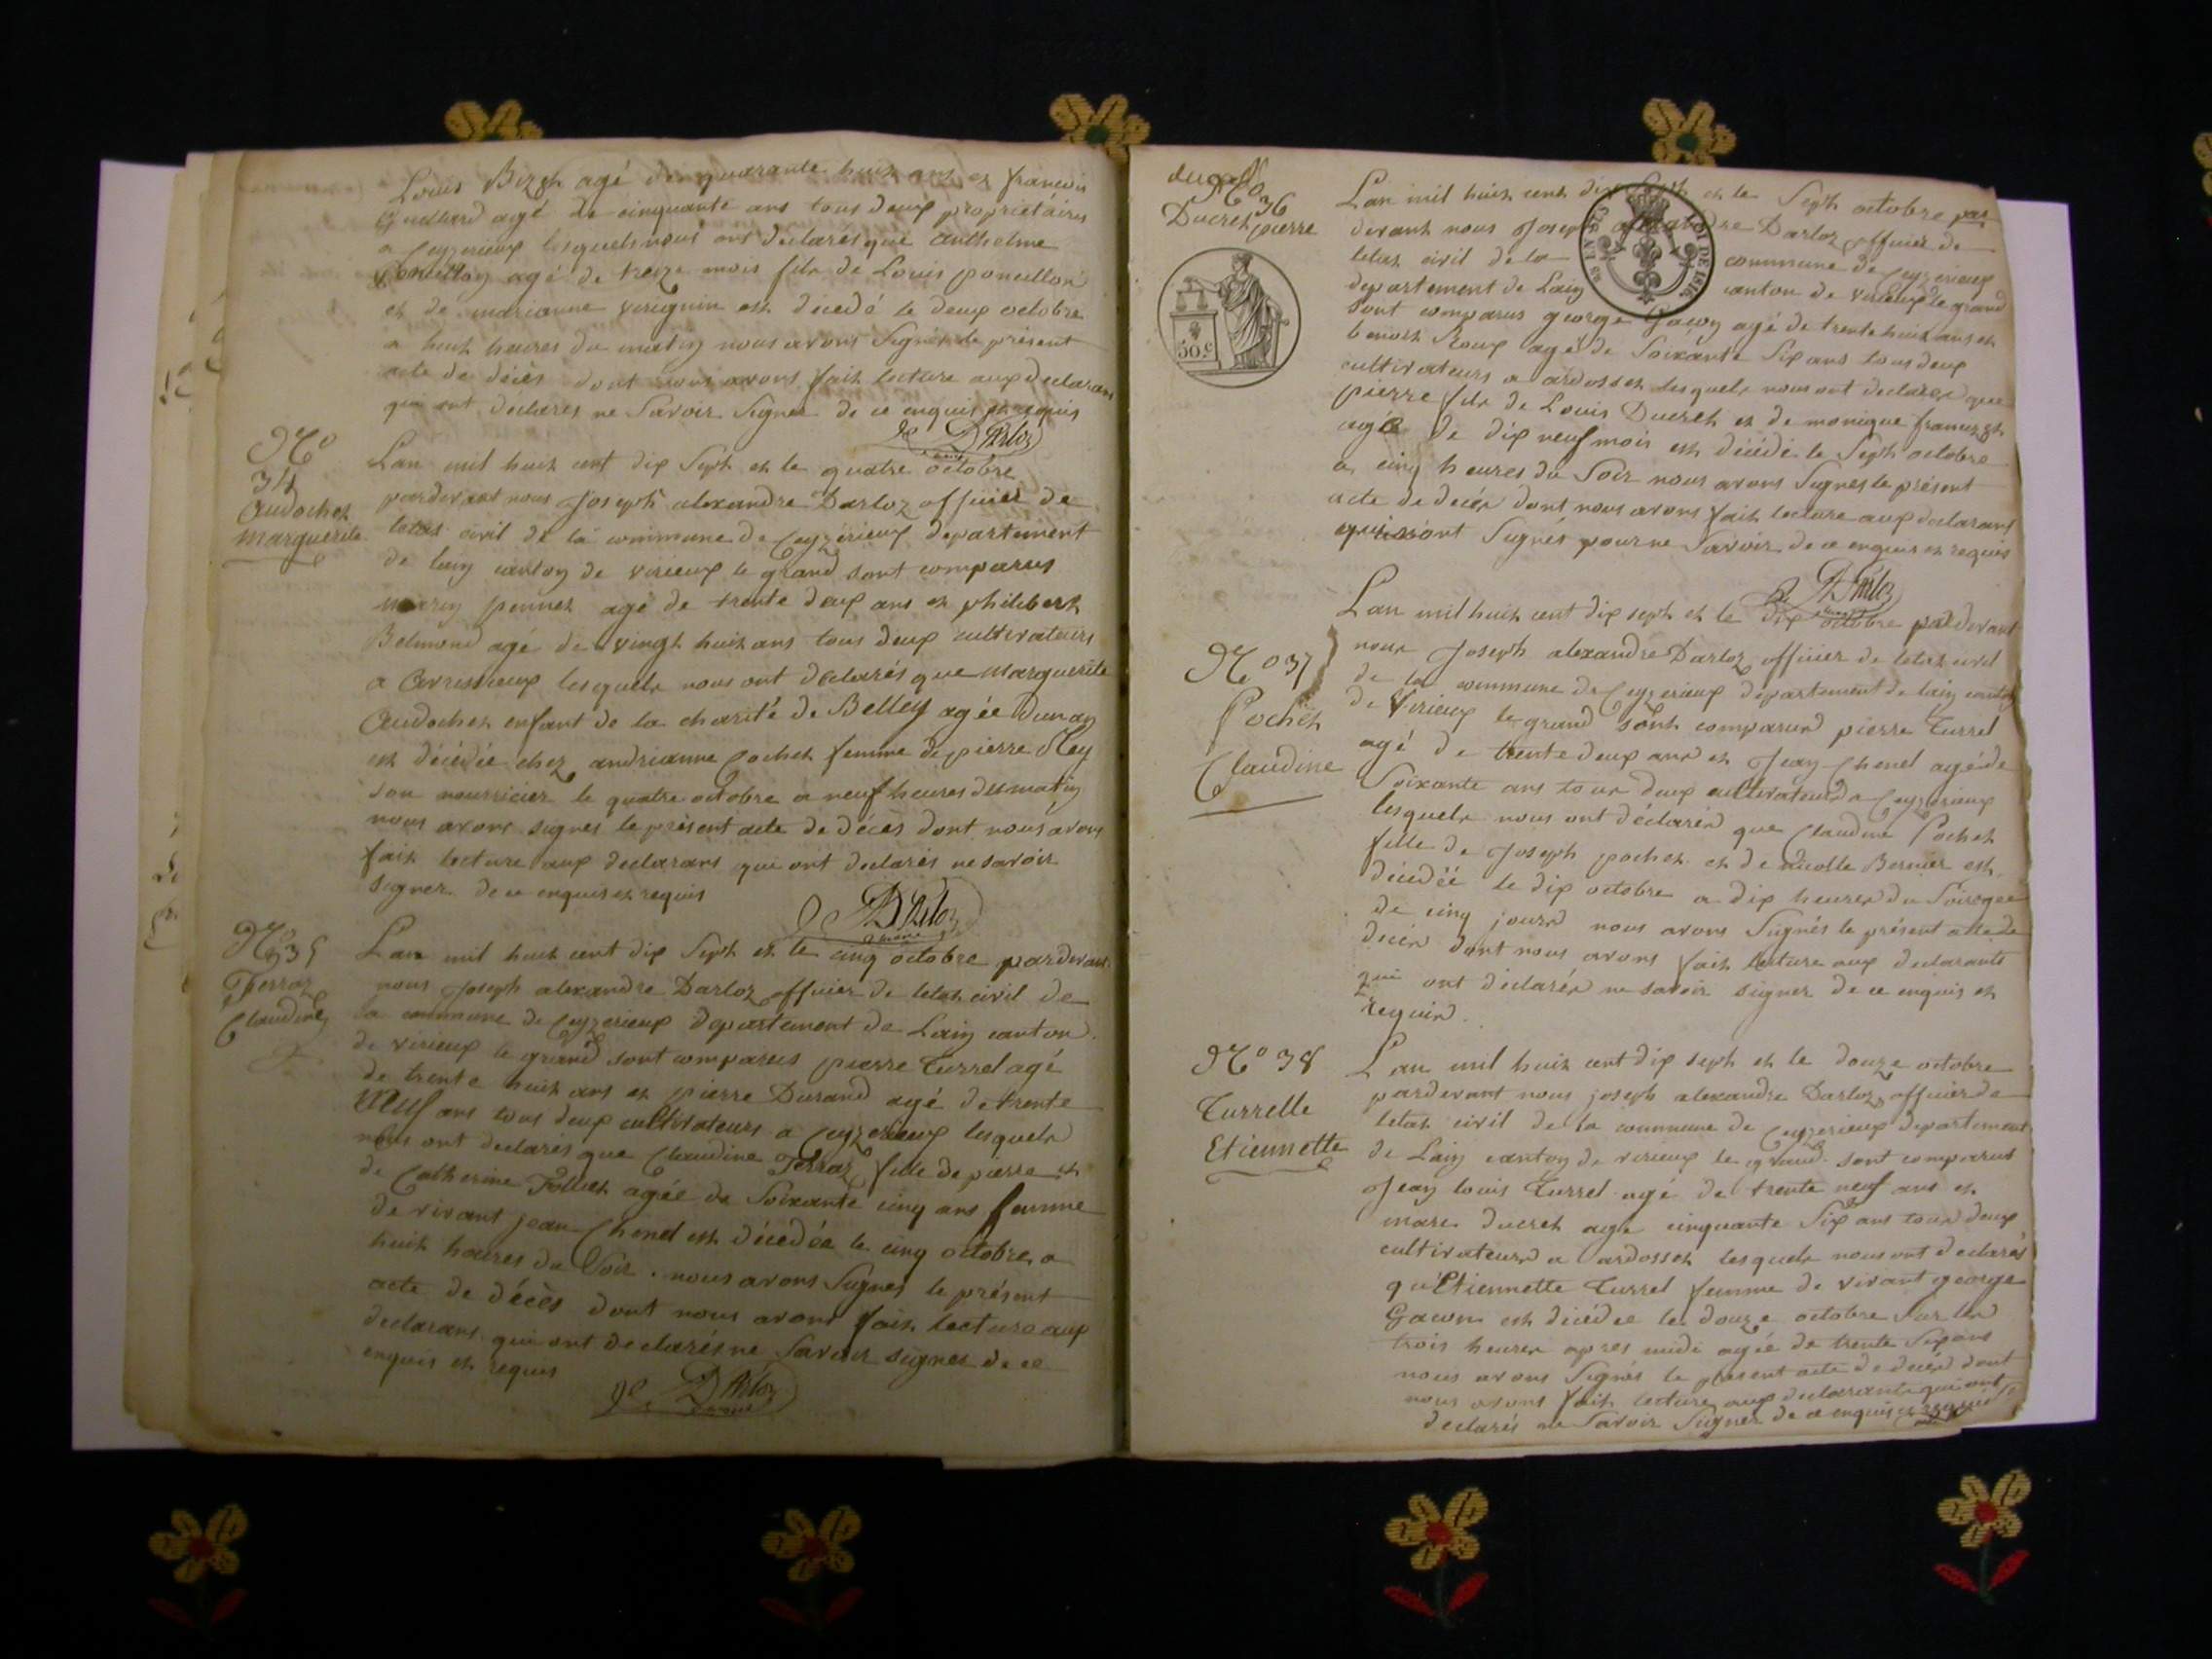 Louis Bizet agé de quarante huit ans et francois
Guillard agé de cinquante ans tous deux proprietaires
a Ceyzerieux lesquels nous ont declarés que anthelme
poncillon agé de treize mois fils de Louis poncillon
et de marianne virignin est décedé le deux octobre
a huit heures du matin nous avons Signés le présent
acte de décès dont nous avons fait lecture aux declarans
qui ont déclarés ne Savoir Signer de ce enquis et requis
Darloz
maire
No
34
Audochet
marguerite
Lan mil huit cent dix Sept et le quatre octobre
pardevant nous Joseph alexandre Darloz officier de
letat civil de la commune de Ceyzerieux departement
de lain canton de virieux le grand sont comparus
marin pennet agé de trente deux ans et philibert
Belmond agé de vingt huit ans tous deux cultivateurs
a avrissieux lesquels nous ont declarés que marguerite
Audochet enfant de la charité de Belley agée dun an
est décédée chez andrianne Cochet femme de pierre Rey
son nourricier le quatre octobre a neuf heures du matin
nous avons signés le présent acte de décès dont nous avons
fait lecture aux declarans qui ont declarés ne savoir
signer de ce enquis et requis
Darloz
maire
No 35
Terraz
Claudine
Lan mil huit cent dix Sept et le cinq octobre pardevant
nous Joseph alexandre Darloz officier de letat civil de
la commune de Ceyzerieux departement de Lain canton
de virieux le grand sont comparus pierre Turrel agé
de trente huit ans et pierre Durand agé de trente
neuf ans tous deux cultivateurs a Ceyzerieux lesquels
nous ont declarés que Claudine Terraz fille de pierre et
de Catherine Folliet agée de Soixante cinq ans femme
de vivant jean Chenel est décédée le cinq octobre a
huit heures du Soir nous avons Signés le présent
acte de décès dont nous avons fait lecture aux
declarans qui ont declarés ne Savoir signer de ce
enquis et requis
Darloz
maire
No 36
Ducret pierre
50 c
Lan mil huit cent dix Sept et le Sept octobre par
devant nous Joseph alexandre Darloz officier de
letat civil de la commune de Ceyzerieux
departement de Lain canton de virieux le grand
LOI DE 1816
sont comparus george Gacon agé de trente huit ans et
benoit Roux agé de Soixante Six ans tous deux
cultivateurs a ardosset lesquels nous ont declarés que
pierre fils de Louis Ducret et de monique
agé de dix neuf mois est décédé le Sept octobre
a cinq heures du Soir nous avons Signés le présent
acte de decés dont nous avons fait lecture aux declarans
qui nont Signés pour ne Savoir de ce enquis et requis
Darloz
maire
No 37
Pochet
Claudine
Lan mil huit cent dix sept et le dix octobre pardevant
nous Joseph alexandre Darloz officier de letat civil
de la commune de Ceyzerieux departement de lain canton
de Virieux le grand sont comparus pierre Turrel
agé de trente deux ans et Jean Chenel agé de
Soixante ans tous deux cultivateurs a Ceyzerieux
lesquels nous ont déclarés que Claudine Pochet
fille de Joseph pochet et de nicolle Bernier est
décédée le dix octobre a dix heures du Soir agée
de cinq jours nous avons Signés le présent acte de
decés dont nous avons fait lecture aux declarants
qui ont déclarés ne savoir signer de ce enquis et
requis.
No 38
Turrelle
Etiennette
Lan mil huit cent dix sept et le douze octobre
pardevant nous joseph alexandre Darloz officier de
letat civil de la commune de Ceyzerieux departement
de Lain canton de virieux le grand sont comparus
Jean louis Turrel agé de trente neuf ans et
marc ducret agé cinquante Six ans tous deux
cultivateurs a ardosset lesquels nous ont declarés
qu'Etiennette Turrel femme de vivant george
Gacon est décédée le douze octobre Sur les
trois heures apres midi agée de trente Six ans
nous avons Signés le présent acte de decés dont
nous avons fait lecture aux declarants qui ont
declarés ne Savoir Signer de ce enquis et requis